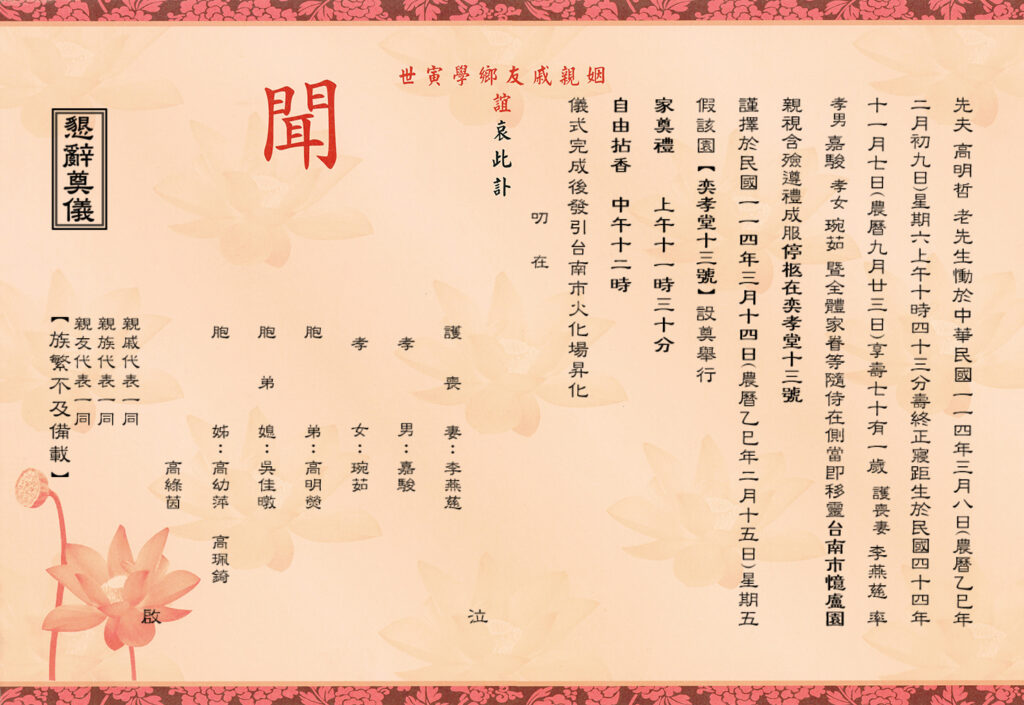 先夫 高明哲 老先生慟於中華民國一一四年三月八日(農曆乙巳年
二月初九日)星期六上午十時四十三分壽終正寢距生於民國四十四年
十一月七日(農曆九月廿三日)享壽七十有一歲 護喪妻 李燕慈 率
孝男 嘉駿 孝女 琬茹 暨全體家眷等隨侍在側當即移靈台南市憶盧園
親視含殮遵禮成服停柩在奕孝堂十三號
謹擇於民國一一四年三月十四日(農曆乙巳年二月十五日)星期五
假該園【奕孝堂十三號】設奠舉行
家奠禮 上午十一時三十分
自由拈香 中午十二時
儀式完成後發引台南市火化場昇化
叨在
姻親戚友鄉學寅世
誼哀此訃
聞
護喪妻：李燕慈
孝男：嘉駿
孝女：琬茹
胞弟：高明熒
胞弟媳：吳佳暾
胞姊：高幼萍 高珮錡
高綠茵
泣
啟
親戚代表一同
親族代表一同
親友代表一同
【族繁不及備載】
懇辭奠儀